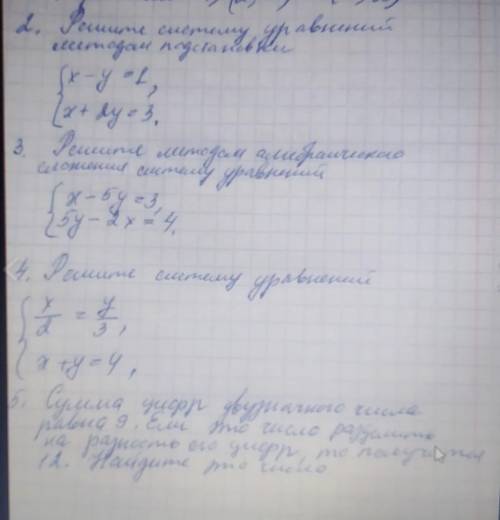 2. Решите систему уравнений
методом подстановки
{ x - y = 1,
{ x + 2y = 3.
3. Решите методом алгебраического
сложения систему уравнений
{ x - 5y = 3,
{ 5y - 2x = 4.
4. Решите систему уравнений
{ x/2 = y/3,
{ x + y = 4,
5. Сумма цифр двузначного числа
равна 9. Если это число разделить
на разность его цифр, то получится
12. Найдите это число